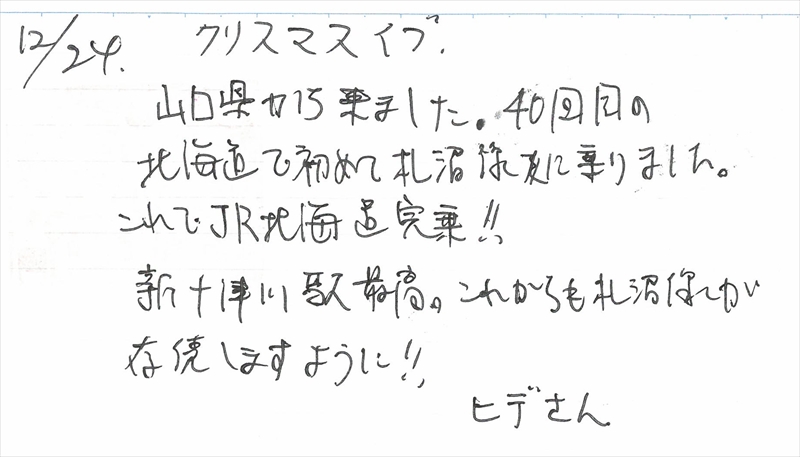 12/24. クリスマスイブ.
山口県から来ました。40回目の
北海道で初めて札沼線に乗りました。
これでJR北海道完乗!!
新十津川駅最高。これからも札沼線が
存続しますように!!
ヒデさん